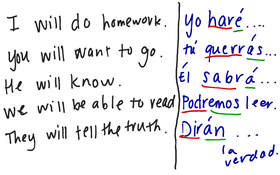 I will do homework.
yo haré....
you will want to go.
tú querrás...
He will know.
Él sabrá...
we will be able to read
Podremos leer.
They will tell the truth.
Dirán ...
la verdad.